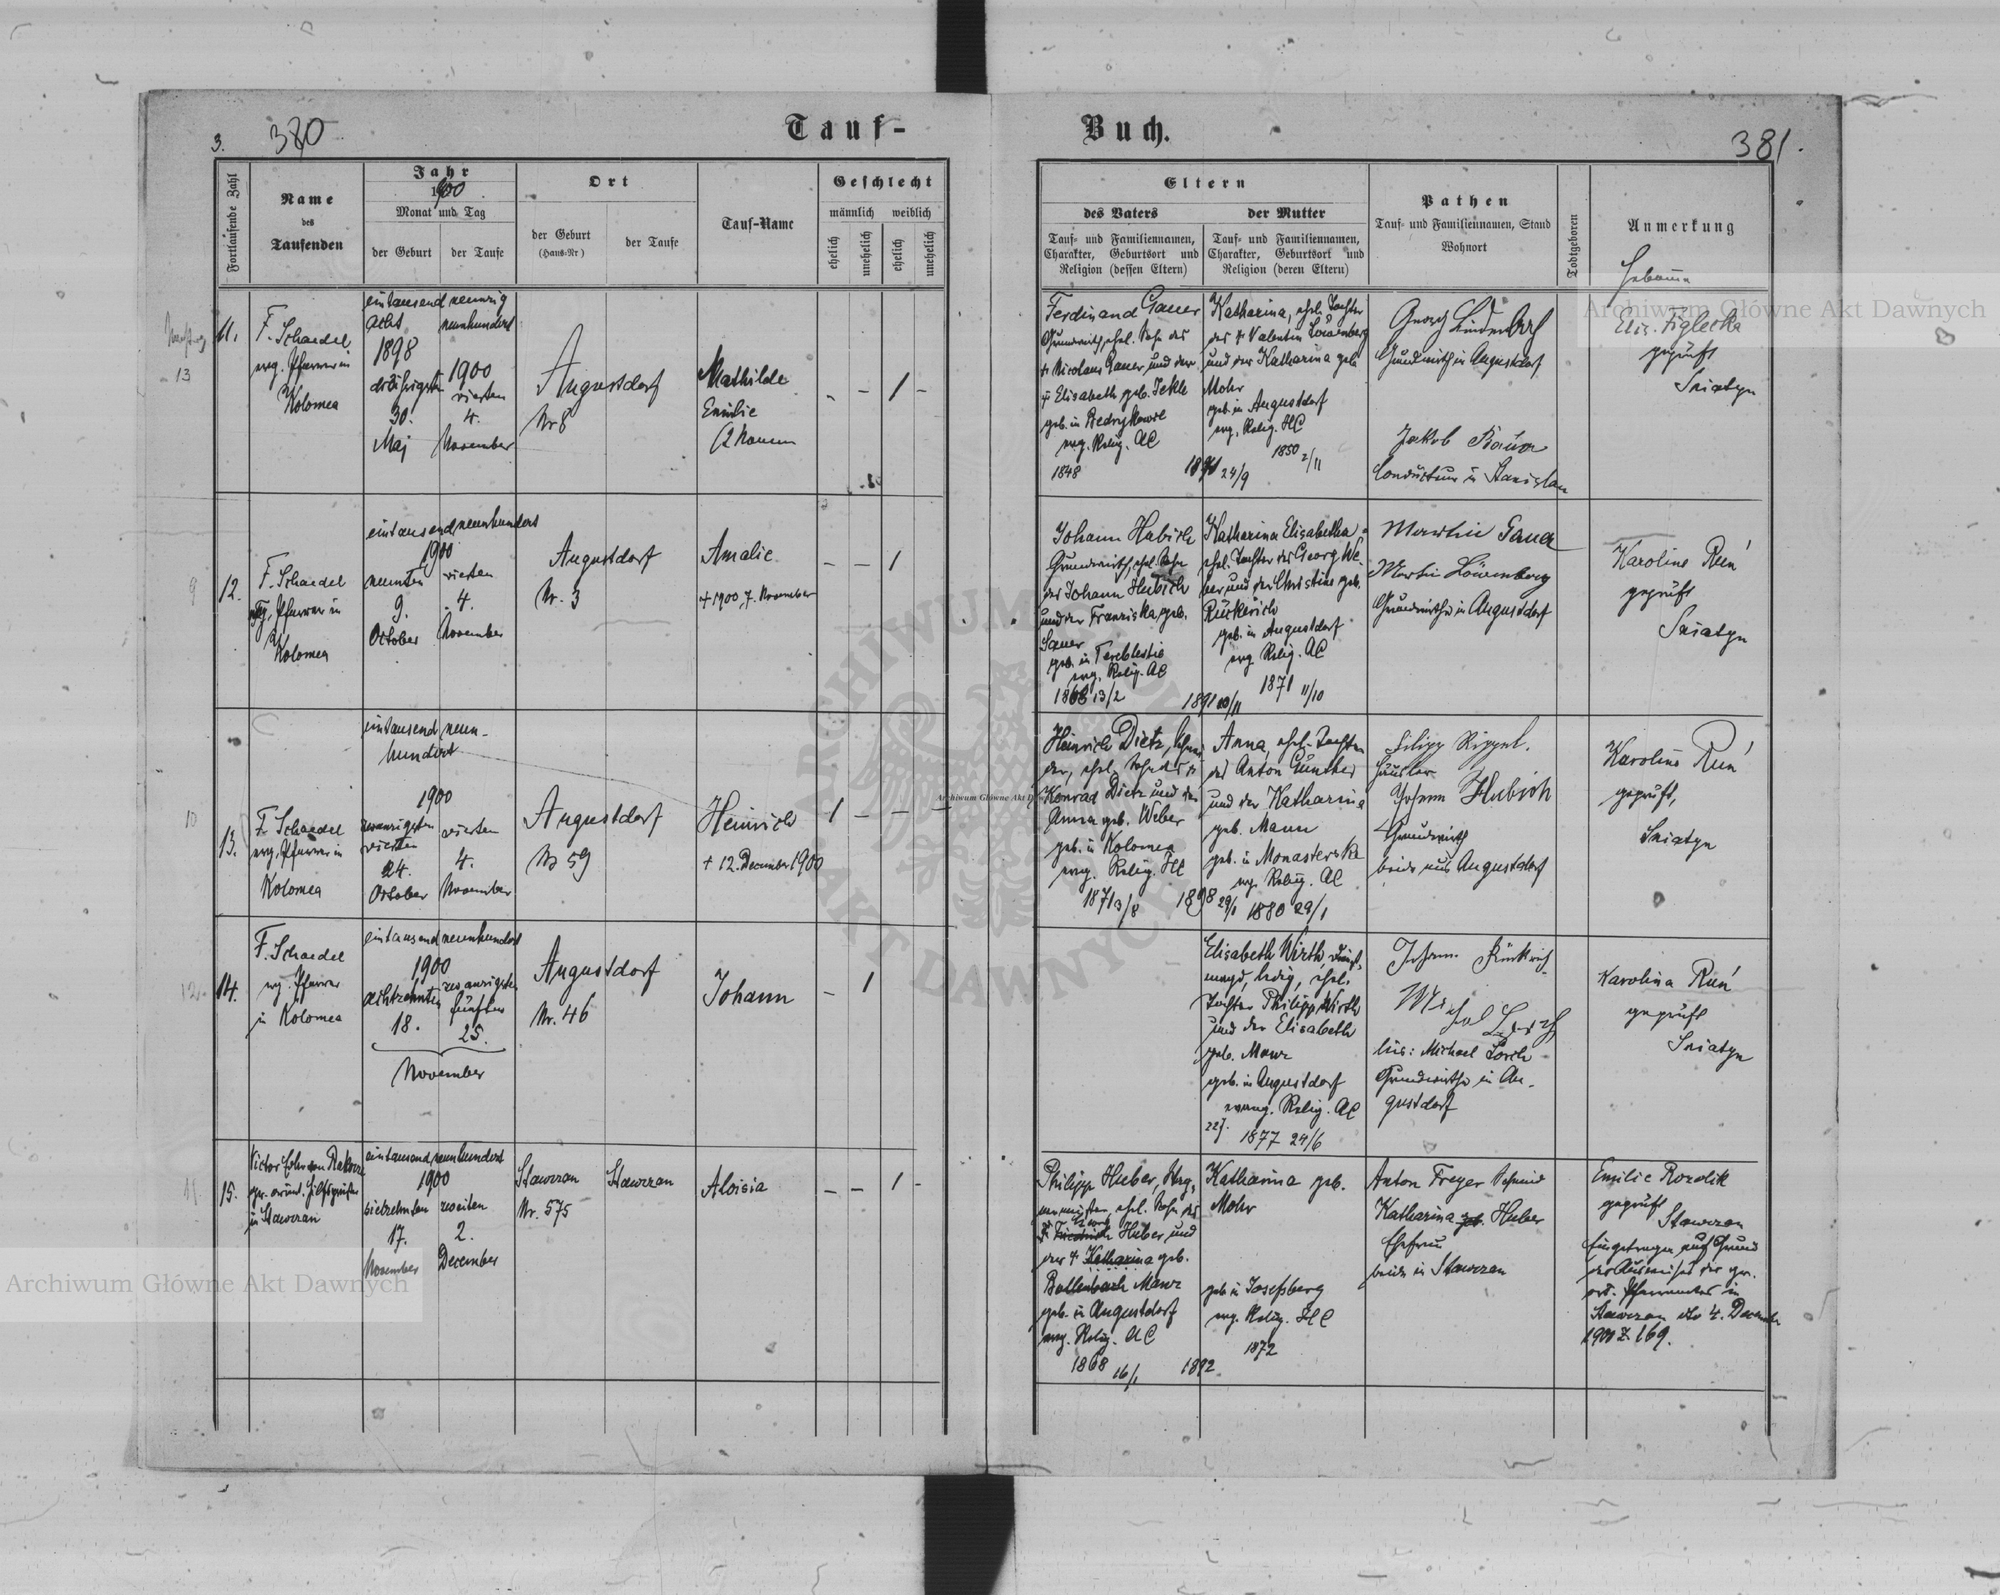 3.
380
Tauf-
Buch.
381.
Fortlaufende Zahl
Name
des
Taufenden
Jahr
1900
Monat und Tag
der Geburt
der Taufe
Ort
der Geburt
(Haus-Nr)
der Taufe
Tauf-Name
Geschlecht
männlich
weiblich
ehelich
unehelich
ehelich
unehelich
Eltern
des Vaters
der Mutter
Tauf- und Familiennamen,
Charakter, Geburtsort und
Religion (dessen Eltern)
Tauf- und Familiennamen,
Charakter, Geburtsort und
Religion (deren Eltern)
Pathen
Tauf- und Familiennamen, Stand
Wohnort
Todtgeboren
Anmerkung
13
11.
F. Schaedel
evg. Pfarrer in
Kolomea
eintausend
acht
1898
dreissigsten
30.
Maj
neunzig
neunhundert
1900
vierten
4.
November
Augustdorf
Nr 8
Mathilde
Emilie
- - 1 -
Ferdinand Gauer
Grundwirth, ehel. Sohn des
+ Nicolaus Gauer und der
+ Elisabeth geb. Jekle
evg. Relig. AC
1848
Katharina, ehel. Tochter
des + Valentin Löwenberg
und der Katharina geb.
Mohr
geb. in Augustdorf
evg. Relig. HC
1850 2/11
24/9
Georg
Grundwirth in Augustdorf
Jakob
Conducteur in Stanislau
Elis. Figlecka
geprüft
Sniatyn
9
12.
F. Schaedel
evg. Pfarrer in
Kolomea
eintausend neunhundert
1900
neunten
9.
October
vierten
4.
November
Augustdorf
Nr. 3
Amalie
+ 1900, 7. November
- - 1
Johann Hubich
Grundwirth, ehel. Sohn
des Johann Hubich
und der Franziska, geb.
Sauer
geb. in Tereblestie
evg. Relig. AC
13/2
Katharina Elisabetha
ehel. Tochter des Georg We-
ber und der Christine geb.
Rückerich
geb. in Augustdorf
evg. Relig. AC
1871 11/10
1891
Martin Gauer
Martin Löwenberg
Grundwirthe in Augustdorf
Karoline Run
geprüft
Sniatyn
10
13.
F. Schaedel
evg. Pfarrer in
Kolomea
eintausend neun-
hundert
1900
zwanzigsten
vierten
24.
October
vierten
4.
November
Augustdorf
No 59
Heinrich
+ 12. December 1900
1 - - -
Heinrich Dietz,
ehel. Sohn des +
Konrad Dietz und der
Anna geb. Weber
geb. in Kolomea
evg. Relig. HC
1871 3/8
Anna, ehel. Tochter
des Anton Günther
und der Katharina
geb. Mann
geb. in Monasterska
evg. Relig. AC
1898 29/1 1880 29/1
Filipp Rippel.
Häusler
Johann Hubich
Grundwirth
beide aus Augustdorf
Karoline Run
geprüft,
Sniatyn
12.
14.
F. Schaedel
evg. Pfarrer
in Kolomea
eintausend neunhundert
1900
achtzehnten
18.
zwanzigsten
fünften
25.
November
Augustdorf
Nr. 46
Johann
- 1
Elisabeth Wirth, Dienst-
magd, ledig, ehel.
Tochter Philipp Wirth
und der Elisabeth
geb. Maur
geb. in Augustdorf
evang. Relig. AC
22j.
1877 24/6
Johann Rückrich
Michal Lorch
lies: Michael Lorch
Grundwirthe in Au-
gustdorf
Karolina Run
geprüft
Sniatyn
11
15.
Victor
in Stawczan
eintausend neunhundert
1900
siebzehnten
17.
November
zweiten
2.
December
Stawczan
Nr. 575
Stawczan
Aloisia
- - 1 -
Philipp Huber,
ehel. Sohn des
+ Friedrich Huber und
der + Katharina geb.
Bollenbach Maur
geb. in Augustdorf
evg. Relig. AC
1868 16/1
1892
Katharina geb.
Mohr
geb. in Josefsberg
evg. Relig. HC
1872
Anton Freyer Schmied
Katharina geb. Huber
Ehefrau
beide in Stawczan
Emilie Rozdlik
geprüft
Stawczan
Eingetragen auf Grund
des Ausweises des gr.
or. Pfarramtes in
Stawczan dto 4. December
1900 Z. 169.
Archiwum Główne Akt Dawnych
Archiwum Główne Akt Dawnych
Archiwum Główne Akt Dawnych
ARCHIWUM GŁÓWNE
AKT DAWNYCH